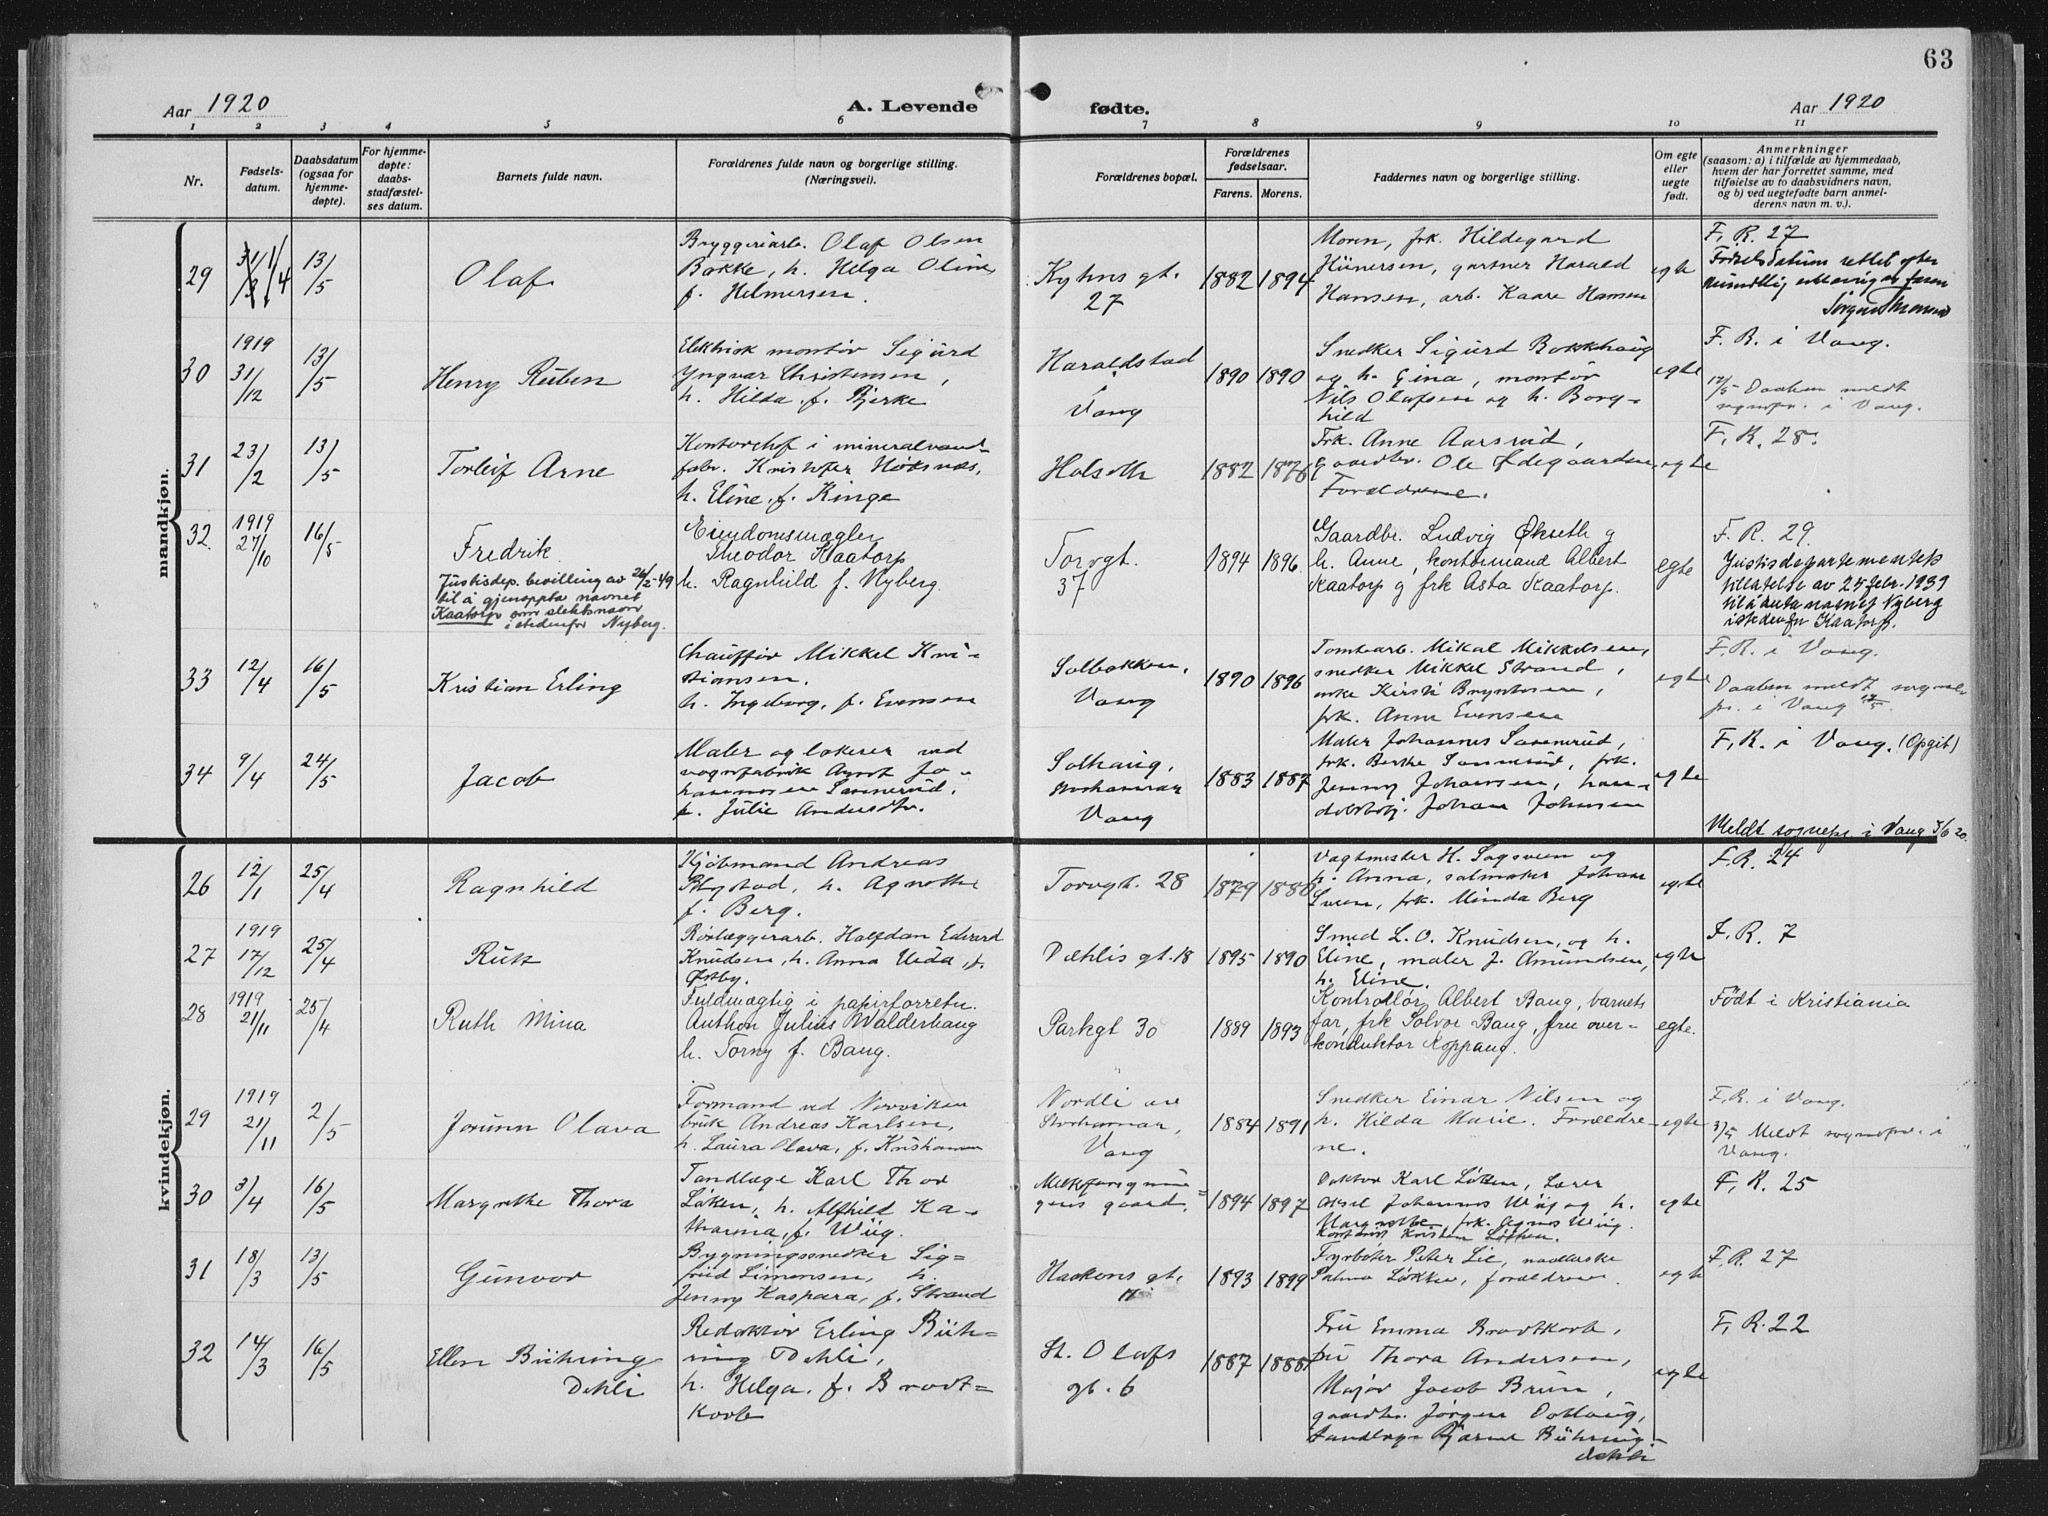 63
Aar 1920
A. Levende
fødte.
Aar 1920
1 2 3 4 5 6 7 8 9 10 11
Nr.
Fødsels-
datum.
Daabsdatum
(ogsaa for
hjemme-
døpte).
For hjemme-
døpte:
daabs-
stadfæstel-
ses datum.
Barnets fulde navn.
Forældrenes fulde navn og borgerlige stilling.
(Næringsvei).
Forældrenes bopæl.
Forældrenes
fødselsaar.
Farens. Morens.
Faddernes navn og borgerlige stilling.
Om egte
eller
uegte
født.
Anmerkninger
(saasom: a) i tilfælde av hjemmedaab,
hvem der har forrettet samme, med
tilføielse av to daabsvidners navn,
og b) ved uegtefødte barn anmel-
derens navn m. v.).
mandkjøn.
29
31/3 1/4
13/5
Olaf
Bryggeriarb. Olaf Olsen
Bakke, h. Helga Oline
f. Helmersen.
Kyhns gt.
27
1882 1894
Moren, frk. Hildegard
Hünersen, gartner Harald
Hansen, arb. Kaare Hansen
egte
F. R. 27
Fødselsdatum rettet efter
mundtlig
30
1919
31/12
13/5
Henry Ruben
Elektrisk montør Sigurd
Yngvar Christensen,
h. Hilda, f. Bjerke
Haraldstad
i
Vang
1890 1890
Snedker Sigurd Bakkhaug
og h. Gina, montør
Nils Olafsen og h. Borg-
hild
egte
F. R. i Vang.
12/5 Daaben meldt
sognepr. i Vang.
31
23/2
13/5
Torleif Arne
Kontorchef i mineralvand-
fabr. Kristofer Høksnæs,
h. Eline, f. Kinge
Holseth
1882 1876
Frk. Anne Aarsrud,
gaardbr. Ole Ødegaarden,
Forældrene.
egte
F. R. 28.
32.
1919
27/10
16/5
Fredrik
Justisdep. bevilling av 26/2-49
til å gjenoppta navnet
Kaatorp som slektsnavn
i stedenfor Nyberg.
Eiendomsmægler
Theodor Kaatorp
h. Ragnhild f. Nyberg.
Torvgt.
37
1894 1896
Gaardbr. Ludvig Økseth g
h. Anne, kontormand Albert
Kaatorp g frk Asta Kaatorp.
egte
F. R. 29.
Justisdepartementets
tillatelse av 25 febr. 1939
til å anta navnet Nyberg
istedenfor Kaatorp.
33
12/4
16/5
Kristian Erling
Chauffør Mikkel Kri-
stiansen.
h. Ingeborg, f. Evensen
Solbakken,
Vang
1890 1896
Tomtearb. Mikal Mikkelsen,
snedker Mikkel Strand,
enke Kirsti Bryntesen,
frk. Anne Evensen
egte
F. R. i Vang.
Daaben meldt sogne-
pr. i Vang 12/5.
34
9/4
24/5
Jacob
Maler og lakerer ved
vognfabrik Arnt Jo-
hannesen Sannerud,
h. Julie Andersdtr.
Solhaug,
Storhamar
Vang
1883 1887
Maler Johannes Sannerud,
frk. Berthe Sannerud, frk.
Jenny Johansen, han-
delsbetj. Johan Johnsen
egte
F. R. i Vang. (Opgit)
Meldt sognepr. i Vang 3/6 20.
kvindekjøn.
26
12/1
25/4
Ragnhild
Kjøbmand Andreas
Blystad, h. Agnethe
f. Berg.
Torvgt. 28
1879 1880
Vagtmester H. Sagsveen og
h. Anna, salmaker Johan
Sveen, frk. Minda Berg
egte
F. R. 24
27
1919
17/12
25/4
Ruth
Rørlæggerarb. Halfdan Edvard
Knudsen, h. Anna Ueda, f.
Østby.
Dæhlis gt. 18
1895 1890
Smed L. O. Knudsen, og h.
Eline, maler J. Amundsen,
h. Eline.
egte
F. R. 7
28
1919
21/11
25/4
Ruth Mina
Fuldmægtig i papirforretn.
Anthon Julius Walderhaug
h. Torny f. Baug.
Parkgt 30
1889 1893
Kontrollør Albert Baug, barnets
far, frk Solvor Baug, fru over-
konduktør Koppang.
egte.
Født i Kristiania
29
1919
21/11
2/5
Jorunn Olava
Formand ved Norviken
bruk Andreas Karlsen,
h. Laura Olava, f. Kristiansen
Nordli
Storhamar,
Vang
1884 1891
Snedker Einar Nilsen og
h. Hilda Marie. Forældre-
ne.
egte
F. R. i Vang.
3/5 Meldt sognepr. i
Vang.
30
3/4
16/5
Margrethe Thora
Tandlæge Karl Thor
Løken, h. Alfhild Ka-
tharina, f. Wiig.
Melkeforsynin-
gens gaard.
1894 1897
Doktor Karl Løken, Lærer
Aksel Johannes Wiig og h.
Margrethe, frk. Agnes Wiig.
Kontorist Kristian Løken.
egte
F. R. 25
31
18/3
13/5
Gunvor
Bygningssnedker Sig-
frid Simensen, h.
Jenny Kaspara, f. Strand
Haakons gt.
1893 1899
Fyrbøter Peter Lie, vaskerske
Palma Løkken, forældrene.
egte
F. R. 27
32
14/3
16/5
Ellen Bühring
Dehli
Redaktør Erling Büh-
ring Dehli,
h. Helga, f. Brodt-
korb
St. Olafs
gt. 6
1887 1888
Fru Emma Brodtkorb,
fru Thora Andersen,
Major Jacob Brun,
gaardbr. Jørgen Dæhlaug,
tandlæge Bjarne Bühring-
Dehli
egte
F. R. 22